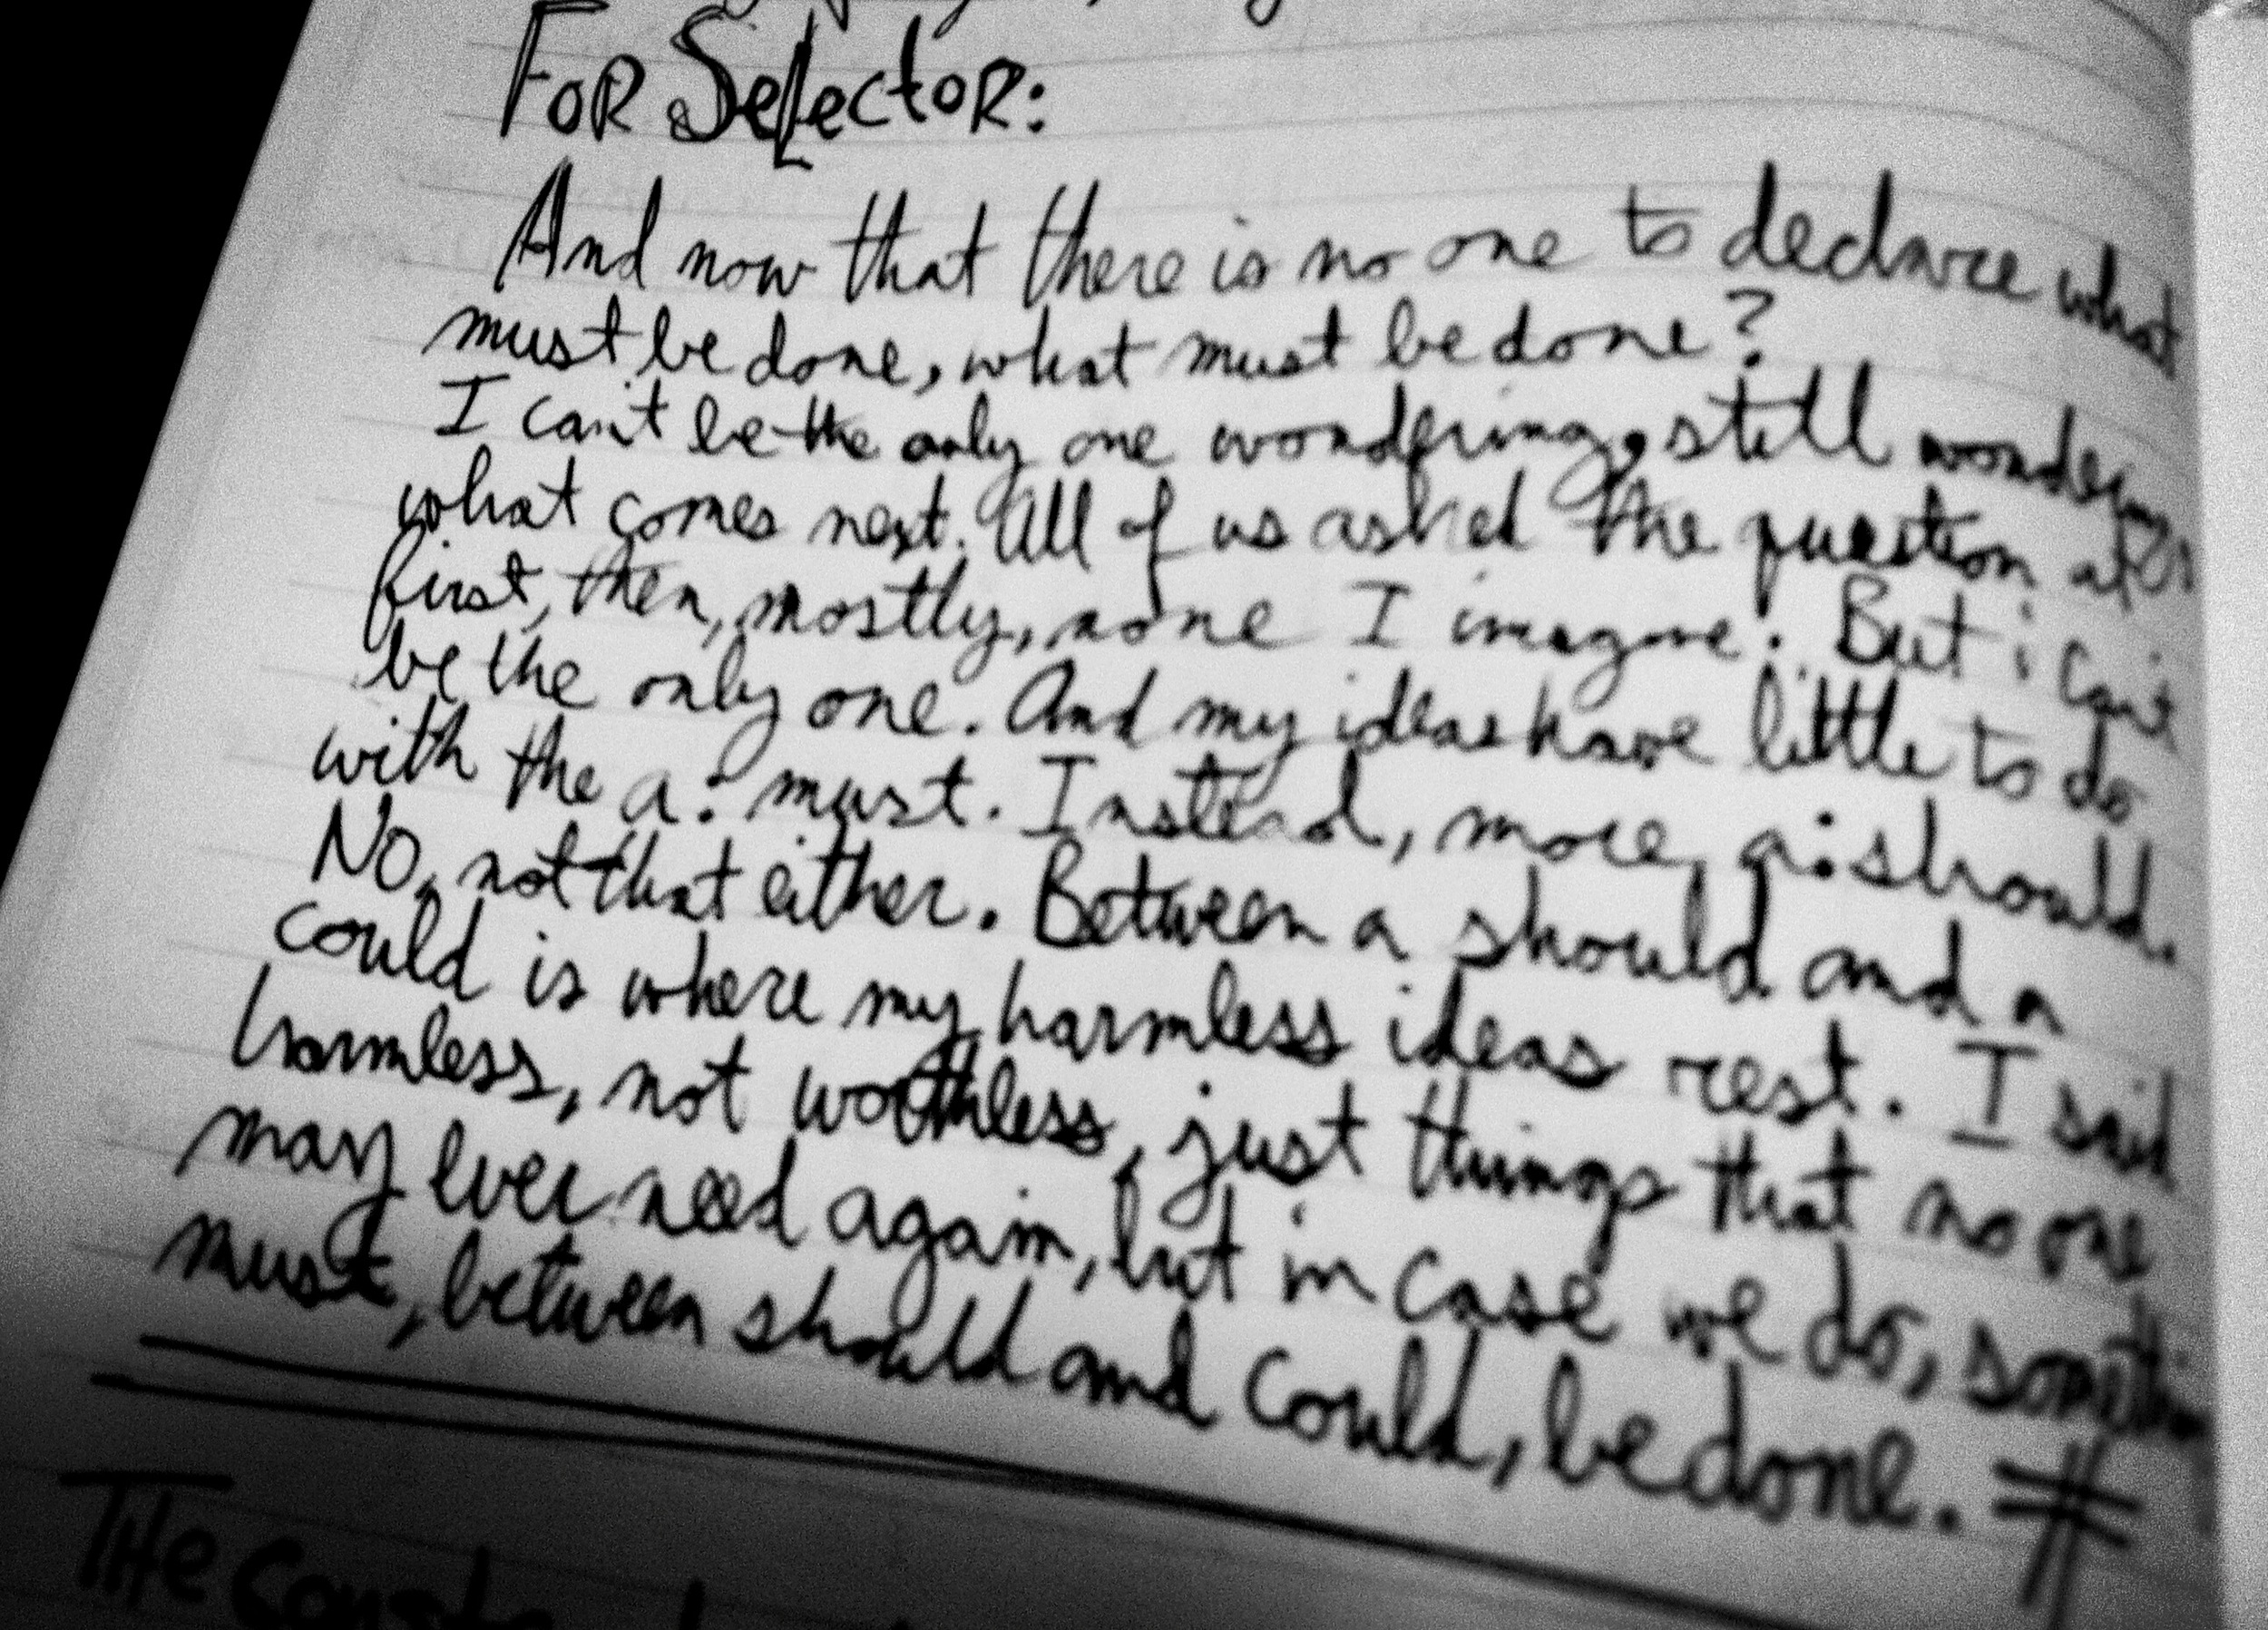 FOR SelectoR:
And now that there is no one to declare what
must be done, what must be done?
I can't be the only one wondering, still wondering
what comes next. All of us asked the question at
first, then, mostly, none I imagine. But i can't
be the only one. And my ideas have little to do
with the a: must. Instead, more, a: should.
No, not that either. Between a should and a
could is where my harmless ideas rest. I said
harmless, not worthless, just things that no one
may ever need again, but in case we do, something
must, between should and could, be done. #
THe